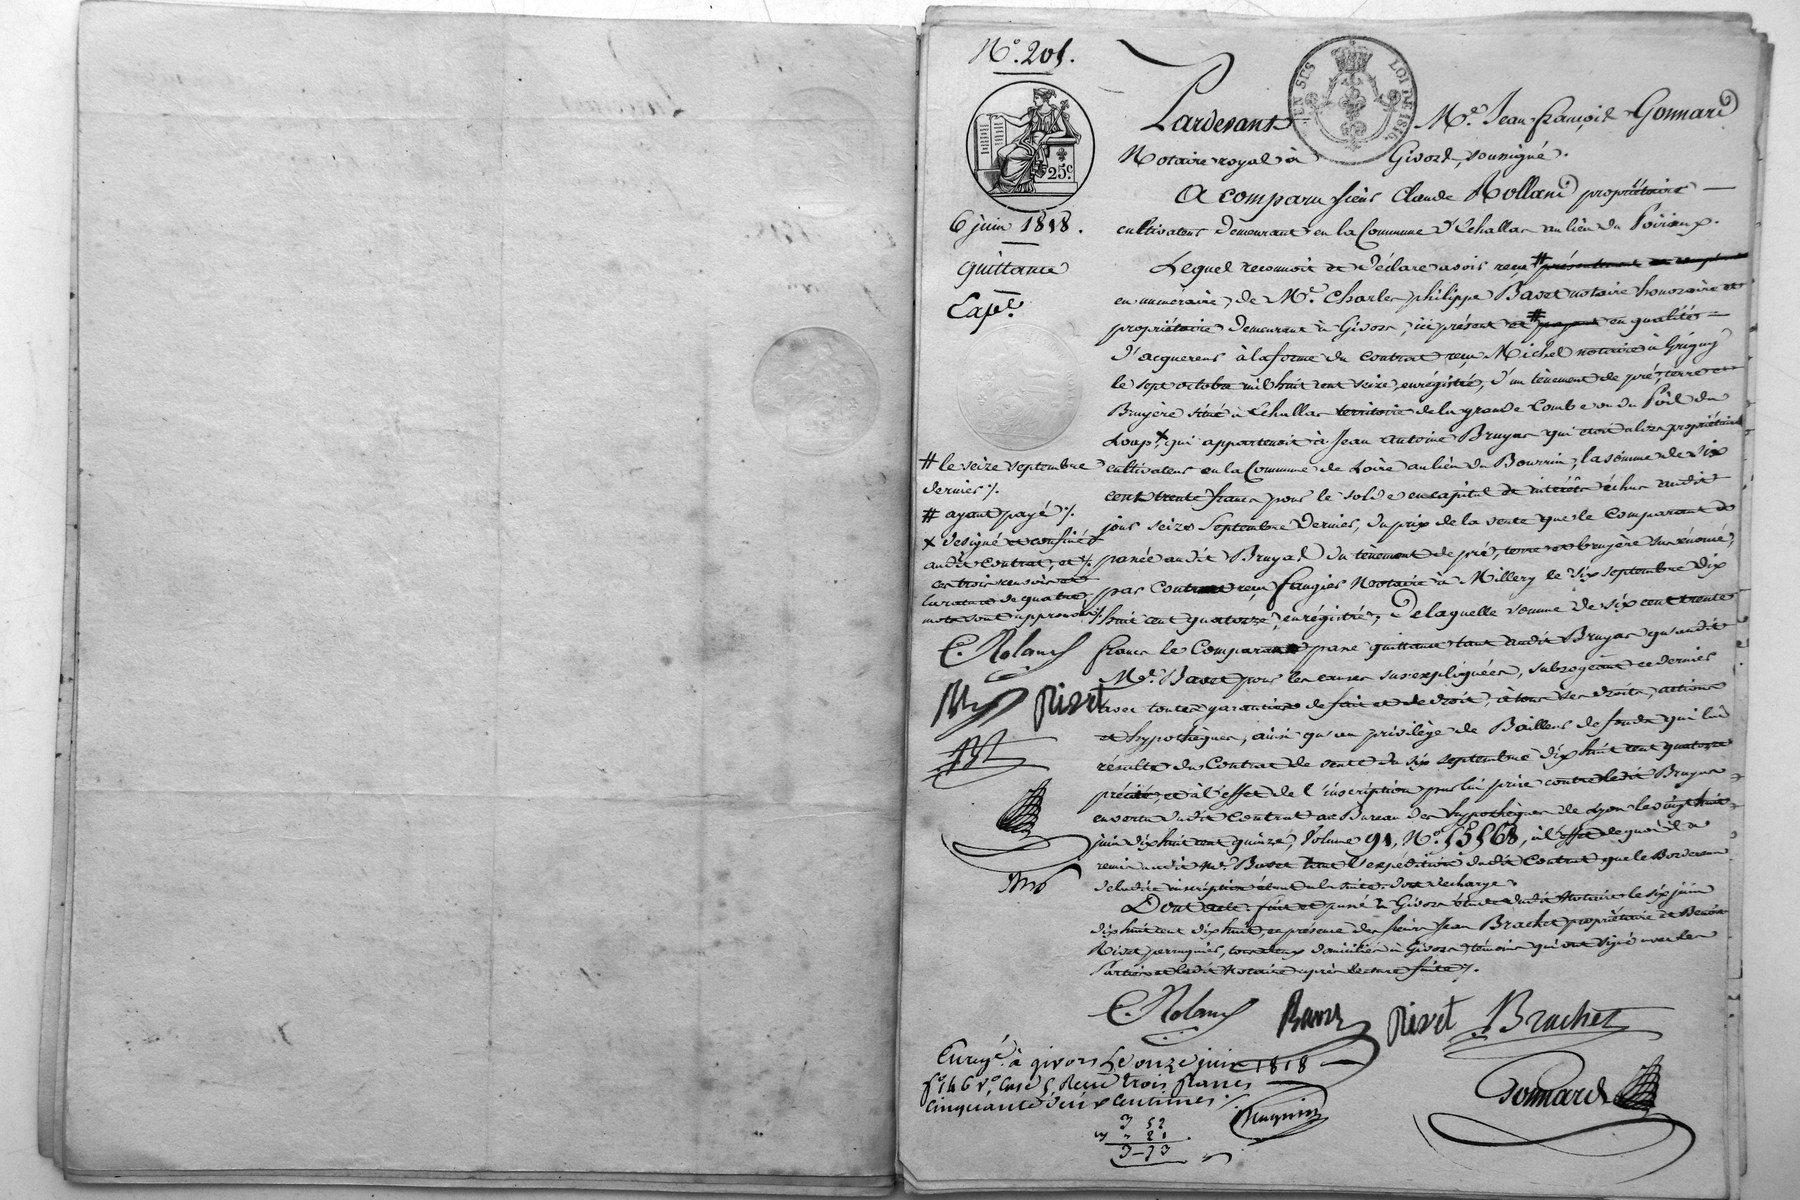 N.o 201.
EN SUS
LOI DE 1816.
25c
6 juin 1818.
quittance
Expé.
Pardevant M.e Jean-françois Gonnard
Notaire royal à Givors, soussigné.
A comparu sieur Claude Rolland propriétaire
cultivateur demeurant en la Commune d'Echallas au lieu du Poirieux.
Lequel reconnoit et déclare avoir reçu # présentement
en numéraire, de M.e Charles philippe Bavet notaire honoraire et
propriétaire demeurant à Givors, ici présent et # payant en qualité
d'acquereur à la forme du contrat reçu Michel notaire à Grigny
le sept octobre mil huit cent seize, enrégistré, d'un tènement de pré, terre et
Bruyère situé à Echallas territoire de la grande Combe ou du Poil du
Loup x, qui appartenoit à Jean Antoine Bruyas qui étoit alors propriétaire
cultivateur en la Commune de Loire au lieu du Bourrin, la somme de six
cent trente francs pour le solde en capital et intérêts échus audit
jour seize Septembre dernier, du prix de la vente que le Comparant a
passée audit Bruyas du tènement de pré, terre et bruyère sus énoncé,
par Contrat reçu faugier Notaire à Millery le six septembre dix
huit cent quatorze, enrégistré, De laquelle somme de six cent trente
francs le Comparant passe quittance tant audit Bruyas qu'audit
M.e Bavet pour les causes susexpliquées, subrogeant ce dernier
avec toutes garanties de fait et de droit, à tous ses droits, actions
et hypothèques, ainsi qu'au privilège de Bailleur de fonds qui lui
résulte du Contrat de vente du six septembre dix huit cent quatorze
précité, et à l'effet de l'inscription par lui prise contre ledit Bruyas
en vertu dudit Contrat au Bureau des hypothèques de Lyon le vingt huit
juin dix huit cent quinze, Volume 91, N.o 15168, à l'effet de quoi il a
remis audit M.e Bavet tant l'expédition dudit Contrat que le Bordereau
de ladite inscription étant à la suite. dont décharge.
Dont acte: fait et passé à Givors étude dudit Notaire le six juin
dix huit cent dix huit, en présence des sieurs Jean Brachet propriétaire et Benoit
Rivet perruquier, tous deux domiciliés à Givors, témoins qui ont signé avec les
Parties et ledit Notaire après lecture faite ./.
# le seize septembre
dernier ./.
# ayant payé ./.
x designé et confiné
audit Contrat, et ./.
ces trois renvois et
la rature de quatre
mots sont approuvés ./.
C. Roland
Rivet
C. Roland Bavet Rivet Brachet
Gonnard
Enregé. à givors Le onze juin 1818
f.o 146 v.o, Case 5, Reçu trois francs
cinquante deux centimes ./.
3 52
3-73